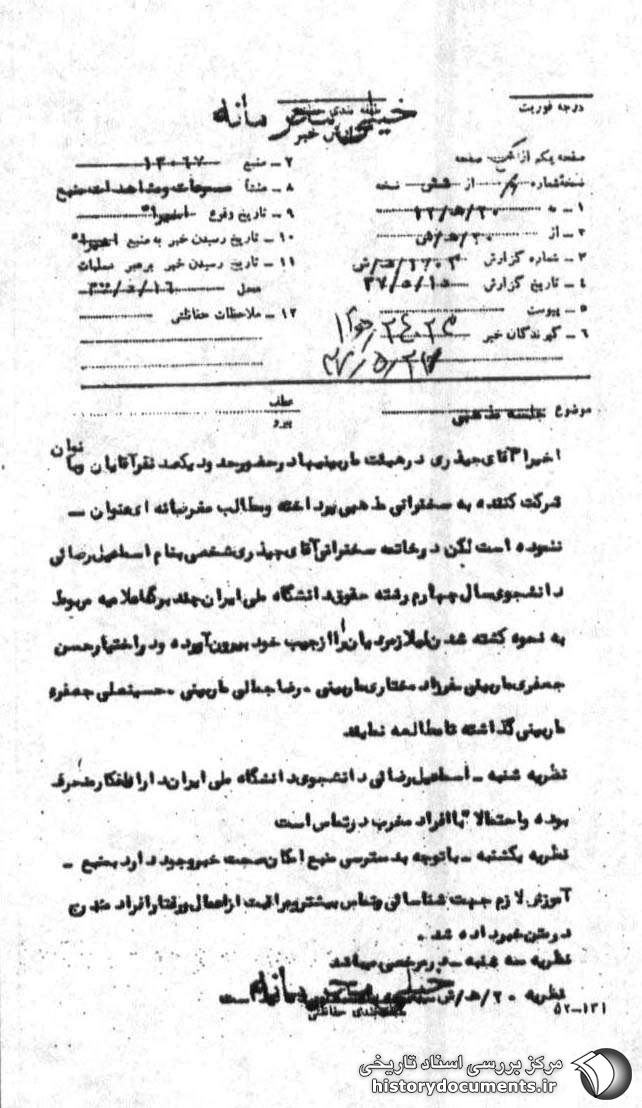 درجه فوریت
خیلی محرمانه
صفحه یکم از یک صفحه
نسخه شماره از شش نسخه
۱ـ به ۱۲/ﻫ/۲۰
۲ـ از ۲۰/ﻫ/ش
۳ـ شماره گزارش
۴ـ تاریخ گزارش ۳۷/۵/۱۵
۵ـ پیوست
۶ـ گیرندگان خبر
۷ـ منبع ۱۳۰۶۷
۸ـ منشأ مسموعات و مشاهدات منبع
۹ـ تاریخ وقوع اخیراً
۱۰ـ تاریخ رسیدن خبر به منبع اخیراً
۱۱ـ تاریخ رسیدن خبر برهبر عملیات
محل
۱۲ـ ملاحظات حفاظتی
موضوع جلسه مذهبی
عطف
پیرو
اخیراً آقای حیدری در هیئت ماربینیها در حضور حدود یکصد نفر آقایان و بانوان
شرکت کننده به سخنرانی مذهبی پرداخته و مطالب مغرضانه ای عنوان ـ
ننموده است لکن در خاتمه سخنرانی آقای حیدری شخصی بنام اسماعیل رضائی
دانشجوی سال چهارم رشته حقوق دانشگاه ملی ایران چند برگ اعلامیه مربوط
به نحوه کشته شدن را از جیب خود بیرون آورده و در اختیار حسن
جعفری ماربینی ـ فرزاد مختاری ماربینی ـ رضا جمالی ماربینی ـ حسینعلی جعفری
ماربینی گذاشته تا مطالعه نمایند
نظریه شنبه ـ اسماعیل رضائی دانشجوی دانشگاه ملی ایران دارای افکار منحرف
بوده و احتمالاً با افراد مخرب در تماس است
نظریه یکشنبه ـ با توجه به دسترسی منبع امکان صحت خبر وجود دارد بمنبع ـ
آموزش لازم جهت شناسائی و تماس بیشتر و مراقبت از اعمال و رفتار افراد مندرج
در متن خبر داده شد .
نظریه سه شنبه ـ در مرخصی میباشد
نظریه ۲۰/ﻫ/ش است
خیلی محرمانه
طبقه بندی حفاظتی
۵۲ـ۱۳۱
مرکز بررسی اسناد تاریخی
historydocuments.ir